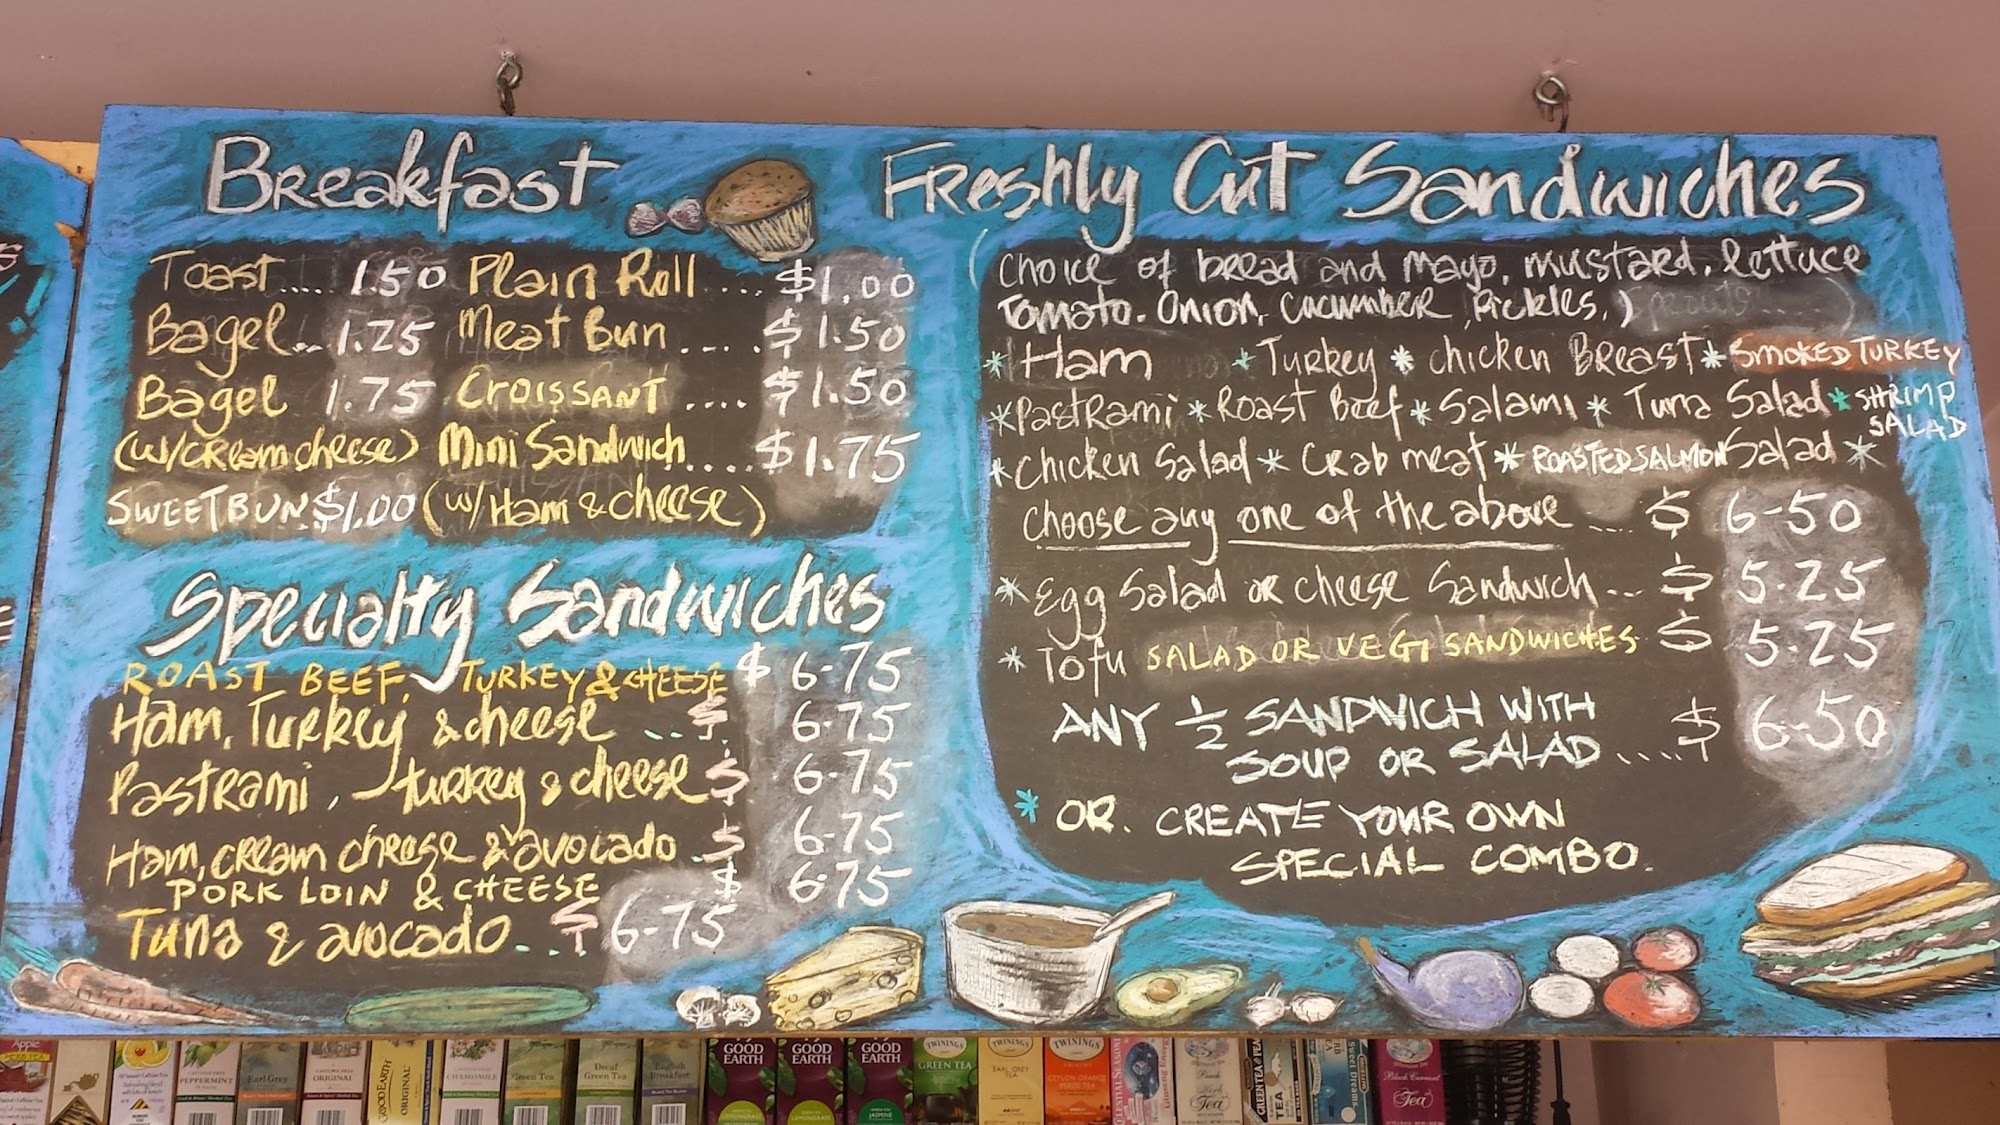 Breakfast
Toast..... 1.50 Plain Roll .... $1.00
Bagel... 1.25 Meat Bun .... $1.50
Bagel 1.75 Croissant .... $1.50
(w/cream cheese) Mini Sandwich .... $1.75
SWEET BUN $1.00 (w/Ham & cheese)
Specialty Sandwiches
ROAST BEEF, TURKEY & CHEESE $ 6-75
Ham, Turkey & cheese .... $ 6-75
Pastrami, turkey & cheese $ 6-75
Ham, cream cheese & avocado . $ 6-75
PORK LOIN & CHEESE $ 6-75
Tuna & avocado ... $ 6-75
Freshly Cut Sandwiches
(Choice of bread and mayo, mustard, lettuce
Tomato. Onion, cucumber, Pickles, )
* Ham * Turkey * chicken Breast * SMOKED TURKEY
* Pastrami * Roast Beef * Salami * Tuna Salad * SHRIMP SALAD
* chicken Salad * Crab meat * ROASTED SALMON Salad *
choose any one of the above .... $ 6-50
* Egg Salad or cheese Sandwich ... $ 5.25
* Tofu SALAD OR VEGI SANDWICHES $ 5.25
ANY 1/2 SANDWICH WITH
SOUP OR SALAD ..... $ 6-50
* OR. CREATE YOUR OWN
SPECIAL COMBO.
Apple
PEPPERMINT
Earl Grey
ORIGINAL
GOOD EARTH ORIGINAL
CHAMOMILE
Green Tea
Decaf Green Tea
English Breakfast
GOOD EARTH LEMONGRASS
GOOD EARTH LEMONGRASS
GOOD EARTH JASMINE
TWININGS GREEN TEA
TWININGS EARL GREY TEA
TWININGS CEYLON ORANGE PEKOE TEA
CELESTIAL SEASONINGS
Tea
GREEN TEA
Sweet Dreams
Black Currant Tea